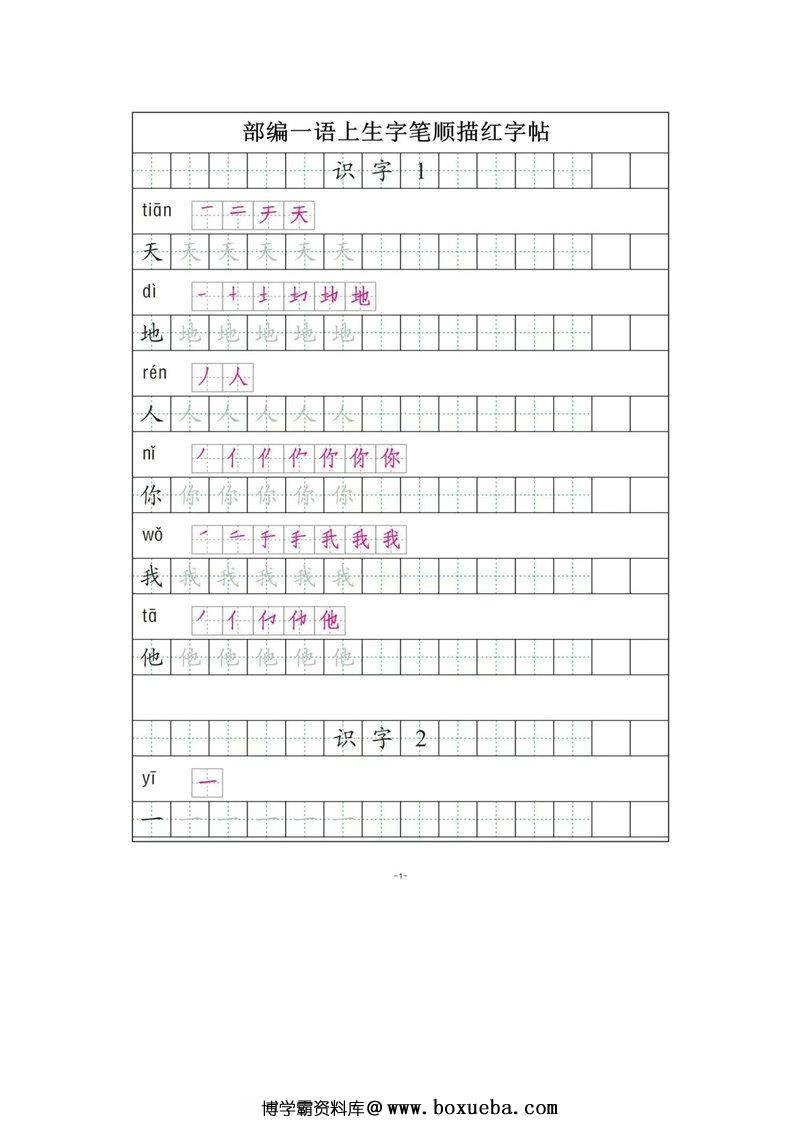 部编一语上生字笔顺描红字帖
识字1
tiān 一 二 于 天
天天天天天天
dì 一 十 土 圵 地 地
地地地地地地
rén 丿 人
人人人人人人
nǐ 丿 亻 你 你
你你你你你你
wǒ 一 二 于 手 我 我 我
我我我我我我
tā 丿 亻 他 他
他他他他他他
识字2
yī 一
一一一一一一
-1-
博学霸资料库@www.boxueba.com